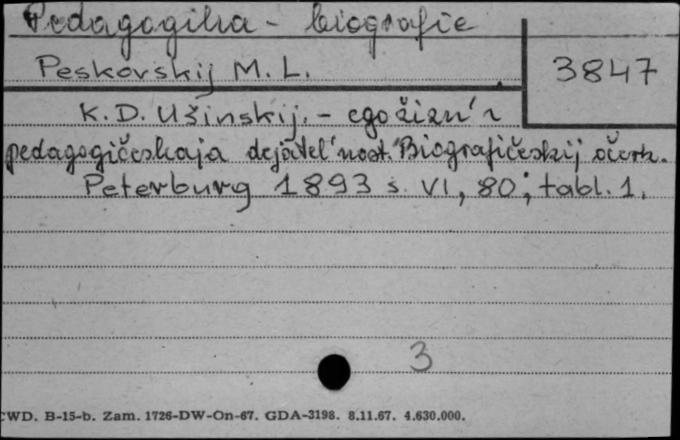 Pedagogika - biografie
Peskovskij M. L.
3847
K. D. Užinskij. - ego žizn' i
pedagogičeskaja dejatel'nost.' Biografičeskij očerk.
Peterburg 1893 s. VI, 80; tabl. 1.
3
CWD. B-15-b. Zam. 1726-DW-On-67. GDA-3198. 8.11.67. 4.630.000.